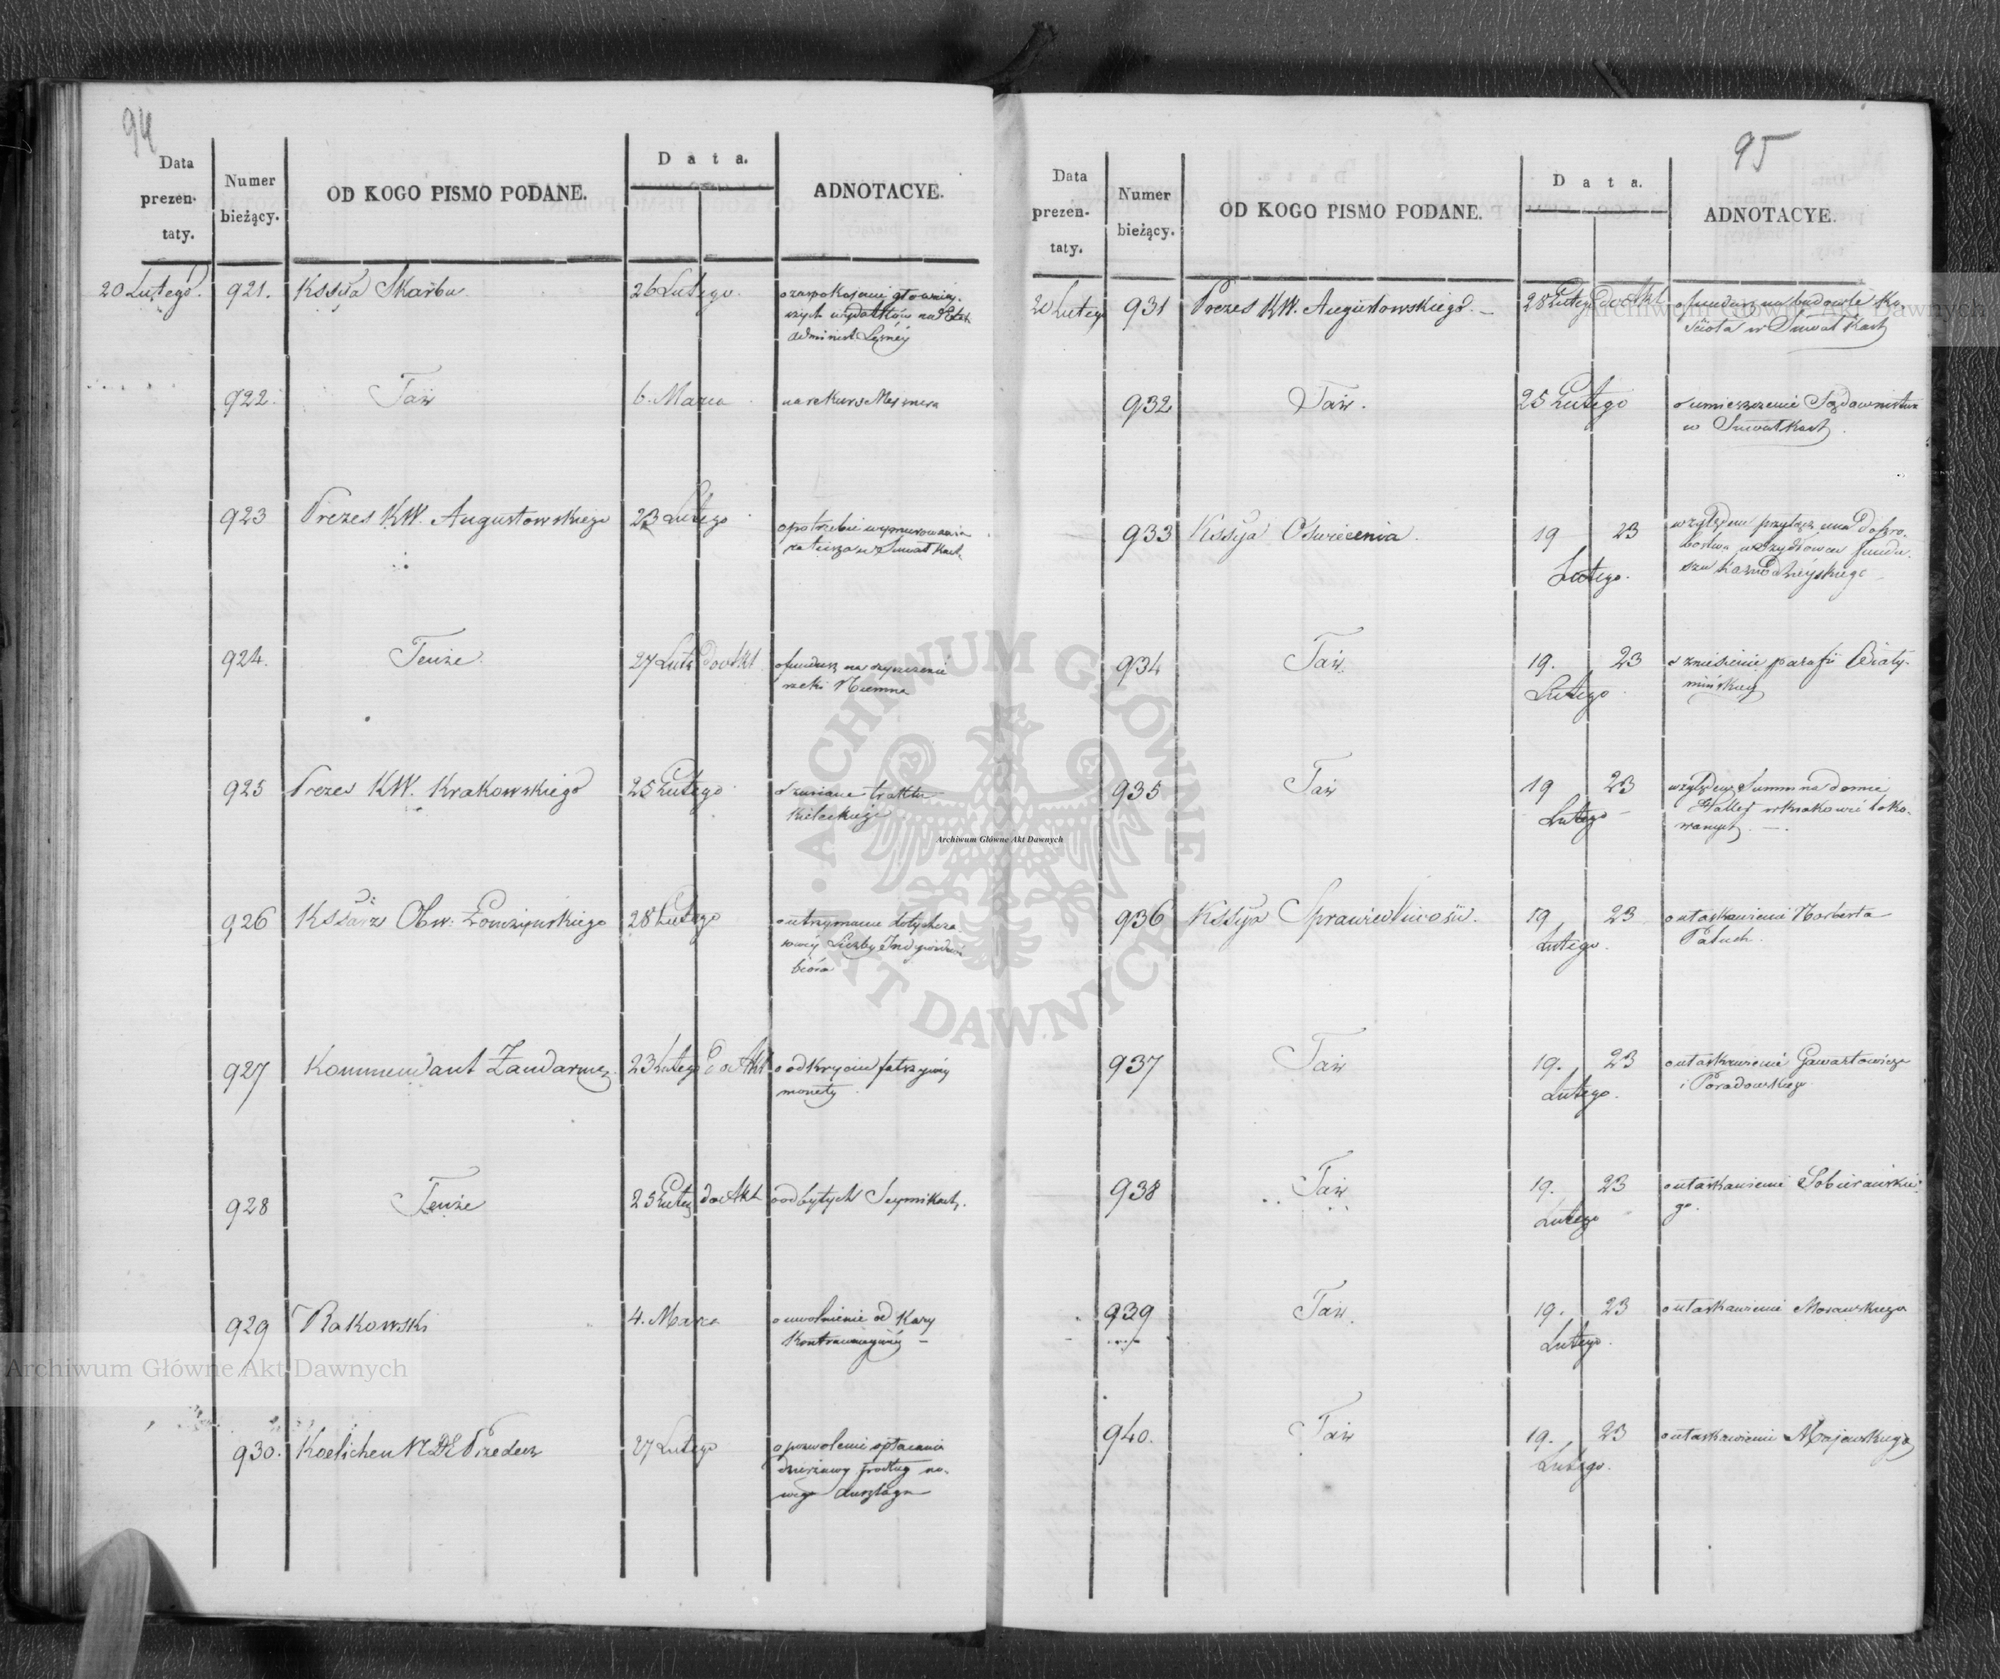 94
Data
prezen-
taty.
Numer
bieżący.
OD KOGO PISMO PODANE.
Data.
ADNOTACYE.
20 Lutego. 921. Kssya Skarbu 26 Lutego. o zaspokojenie
wydatków na
Administ. Leśnéy
922. Taż 6. Marca na rekurs
923 Prezes KW. Augustowskiego 23 Lutego o potrzebie wymurowania
ratusza w Suwałkach
924. Tenże 27 Lut. do Akt o fundusz na czyszczenie
rzeki Niemna
925 Prezes KW. Krakowskiego 25 Lutego o zmianie traktu
Kieleckiego
926 Kssarz Obw: Łomżyńskiego 28 Lutego o utrzymanie dotychcza
sowéy Liczby
bióra
927 Kommendant Żandarmer. 23 Lutego do Akt o odkryciu fałszywéy
monety
928 Tenże 25 Luteg do Akt o odbytych Seymikach.
929 Rakowski 4. Marca o uwolnienie od Kary
Kontrawencyinéy
930. Koelichen 27 Lutego o pozwolenie opłacania
dzierżawy podług no-
wego
95
Data
prezen-
taty.
Numer
bieżący.
OD KOGO PISMO PODANE.
Data.
ADNOTACYE.
20 Lutego 931 Prezes KW. Augustowskiego. 28 Luteg do Akt o fundusz na budowle Ko-
ścioła w Suwałkach
932 Taż. 25 Lutego o umieszczenie Sądownictwa
w Suwałkach.
933 Kssya Oświecenia. 19 23
Lutego.
względem przyłączenia Probo-
stwa w Szydłowcu fundu-
szu Kaznodzieyskiego
934 Taż. 19. 23
Lutego.
o zniesienie parafii Biały-
mińskiey
935 Taż 19 23
Lutego
względem Summ na domie
Halley w Krakowie loko-
wanych.
936 Kssya Sprawiedliwości. 19 23
Lutego.
o ułaskawienie Norberta
Paluch.
937 Taż 19. 23
Lutego.
o ułaskawienie Gawartowicza
i Poradowskiego
938 Taż 19. 23
Lutego
o ułaskawienie Sobierańskie
go.
939 Taż. 19. 23
Lutego.
o ułaskawienie Morawskiego
940. Taż 19. 23
Lutego.
o ułaskawienie Majewskiego
ARCHIWUM GŁÓWNE AKT DAWNYCH
Archiwum Główne Akt Dawnych
Archiwum Główne Akt Dawnych
Archiwum Główne Akt Dawnych